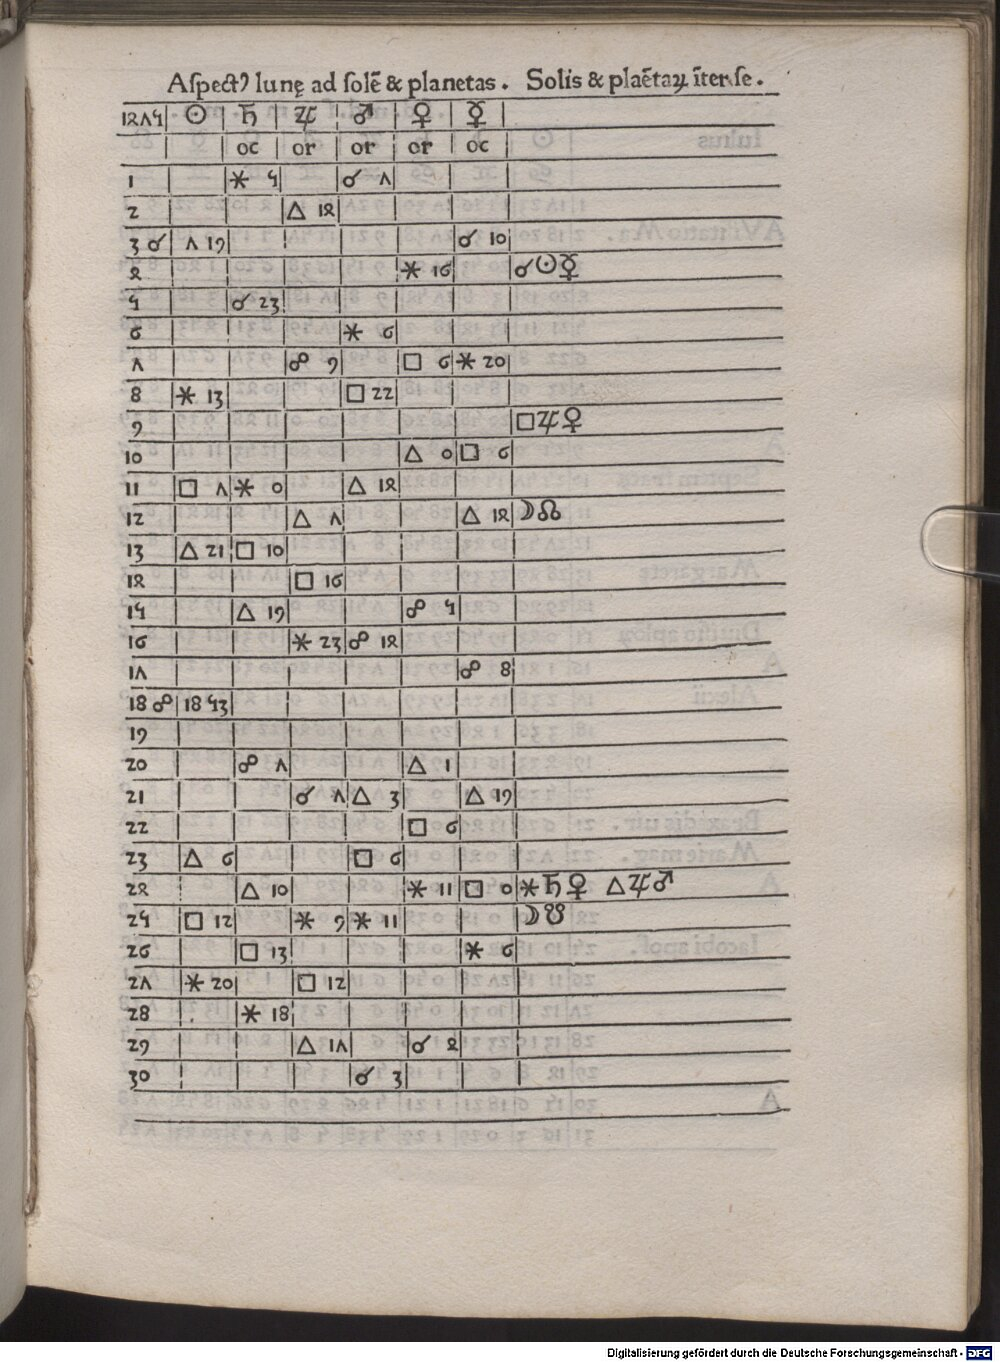 Aſpectꝰ lunę ad ſolē & planetas . Solis & plaētaꝝ īter ſe .
1475 ☉ ♄ ♃ ♂ ♀ ☿
oc or or or oc
1 ⚹ 5 ☌ 7
2 △ 14
3 ☌ 7 19 ☌ 10
4 ⚹ 16 ☌☉☿
5 ☌ 23
6 ⚹ 6
7 ☍ 9 □ 6 ⚹ 20
8 ⚹ 13 □ 22
9 □♃♀
10 △ 0 □ 6
11 □ 7 ⚹ 0 △ 14
12 △ 7 △ 14 ☽☊
13 △ 21 □ 10
14 □ 16
15 △ 19 ☍ 5
16 ⚹ 23 ☍ 14
17 ☍ 8
18 ☍ 18 53
19
20 ☍ 7 △ 1
21 ☌ 7 △ 3 △ 19
22 □ 6
23 △ 6 □ 6
24 △ 10 ⚹ 11 □ 0 ⚹♄♀ △♃♂
25 □ 12 ⚹ 9 ⚹ 11 ☽☋
26 □ 13 ⚹ 6
27 ⚹ 20 □ 12
28 ⚹ 18
29 △ 17 ☌ 4
30 ☌ 3
Digitalisierung gefördert durch die Deutsche Forschungsgemeinschaft - DFG